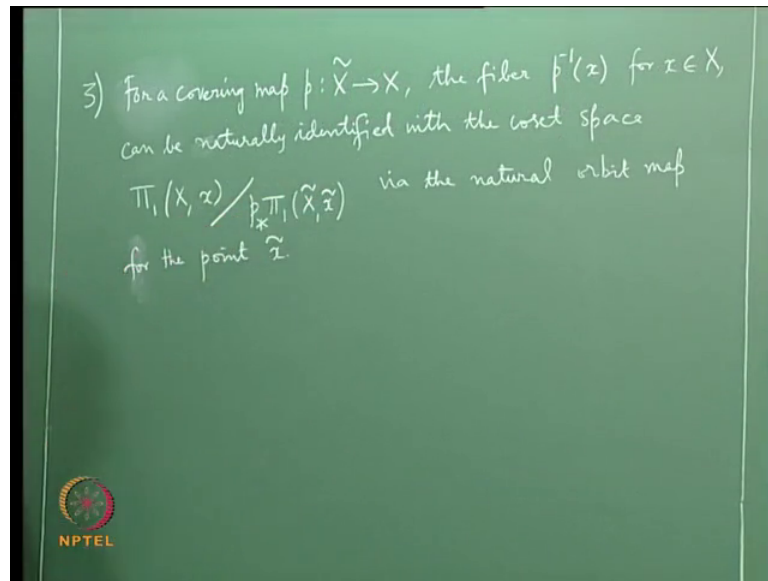 3) For a covering map p : X̃ → X, the fiber p⁻¹(x) for x ∈ X,
can be naturally identified with the coset space
Π₁(X, x) / p_* Π₁(X̃, x̃) via the natural orbit map
for the point x̃.
NPTEL